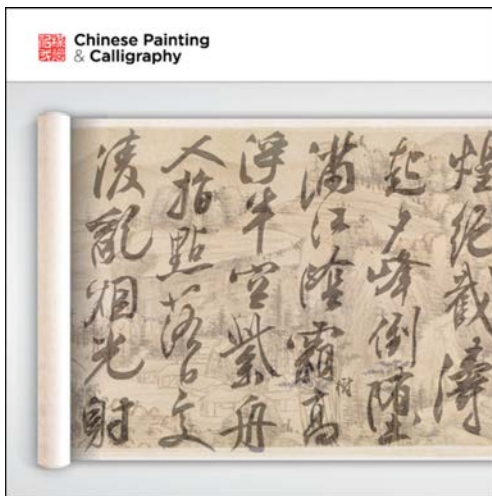 Chinese Painting
& Calligraphy
煌絕截濤
起夕峰倒墮
滿江陰霜樹高
浮半空紫舟
人指點落日交
凌亂烟光射